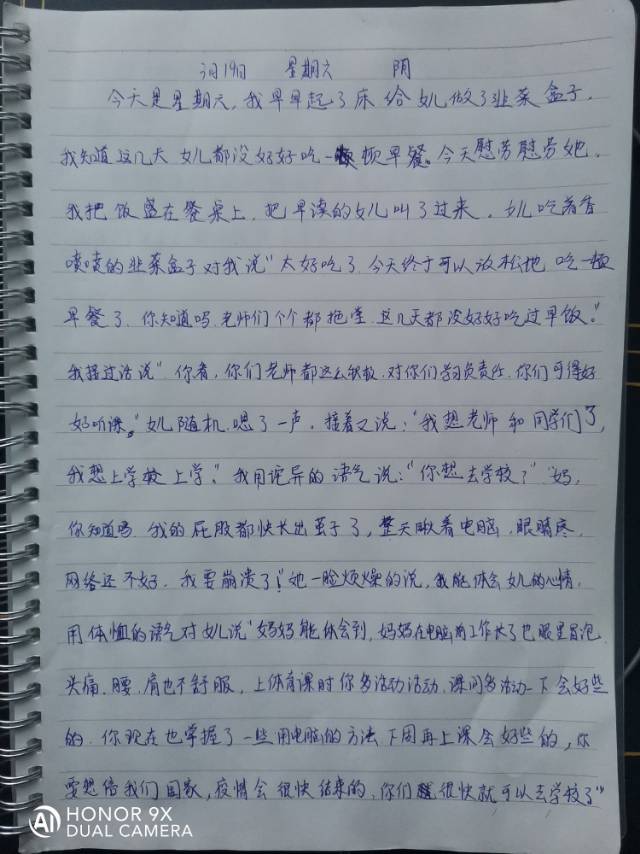 3月19日 星期六 阴
今天是星期六，我早早起了床给女儿做了韭菜盒子，
我知道这几天 女儿都没好好吃一顿早餐。今天慰劳慰劳她。
我把饭盛在餐桌上，把早读的女儿叫了过来，女儿吃着香
喷喷的韭菜盒子对我说"太好吃了，今天终于可以放松地 吃一顿
早餐了，你知道吗，老师们个个都拖堂，这几天都没好好吃过早饭。"
我接过话说"你看，你们老师都这么积极，对你们学习负责任，你们可得好
好听课。"女儿随机 嗯了一声，接着又说："我想老师和同学们了，
我想上学校上学。"我用诧异的语气说："你想去学校了""妈，
你知道吗，我的屁股都快长出茧子了，整天瞅着电脑，眼睛疼，
网络还不好，我要崩溃了！"她一脸烦燥的说，我能体会女儿的心情，
用体恤的语气对女儿说"妈妈能体会到，妈妈在电脑前工作长了也眼里冒泡
头痛、腰、肩也不舒服，上体育课时你多活动活动，课间多活动一下会好些
的，你现在也掌握了一些用电脑的方法 下周再上课会好些的，你
要想信我们国家，疫情会很快结束的，你们很快就可以去学校了"
HONOR 9X
AI DUAL CAMERA